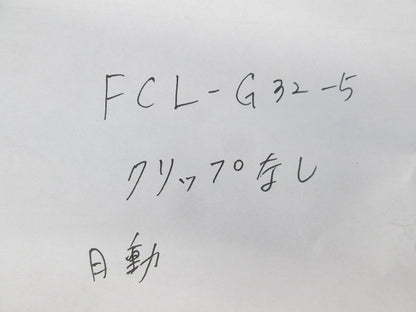 FCL-G32-5
クリップなし
自動